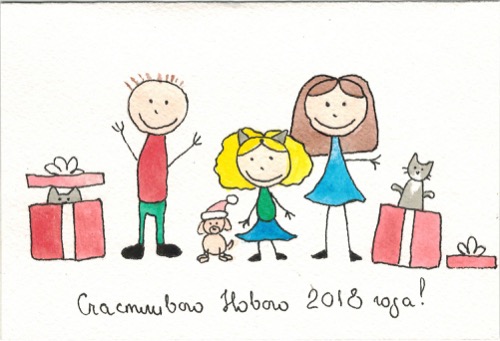 Счастливого Нового 2018 года!